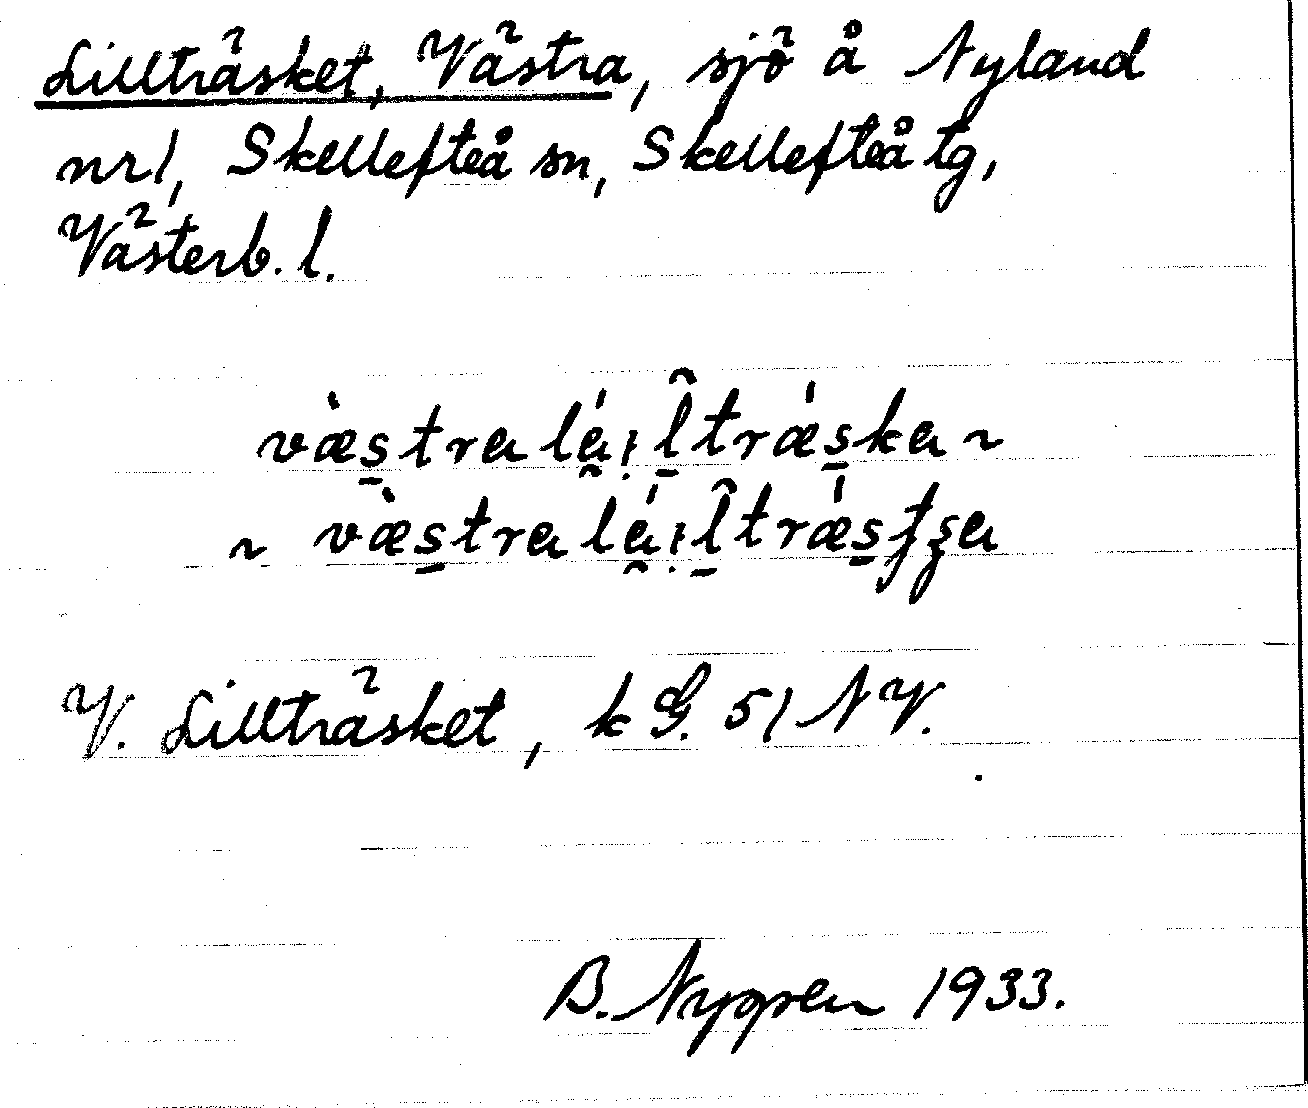 Lillträsket, Västra, sjö å Nyland
nr1, Skellefteå sn, Skellefteå tg,
Västerb. l.
væ̀s̱tra lá̯i̯ḻ̂træ̍s̱ka ~
~ væ̀s̱tra lá̯i̯ḻ̂træ̍s̱ʈʂa
V. Lillträsket, k G. 51 NV.
B. Nyggren 1933.